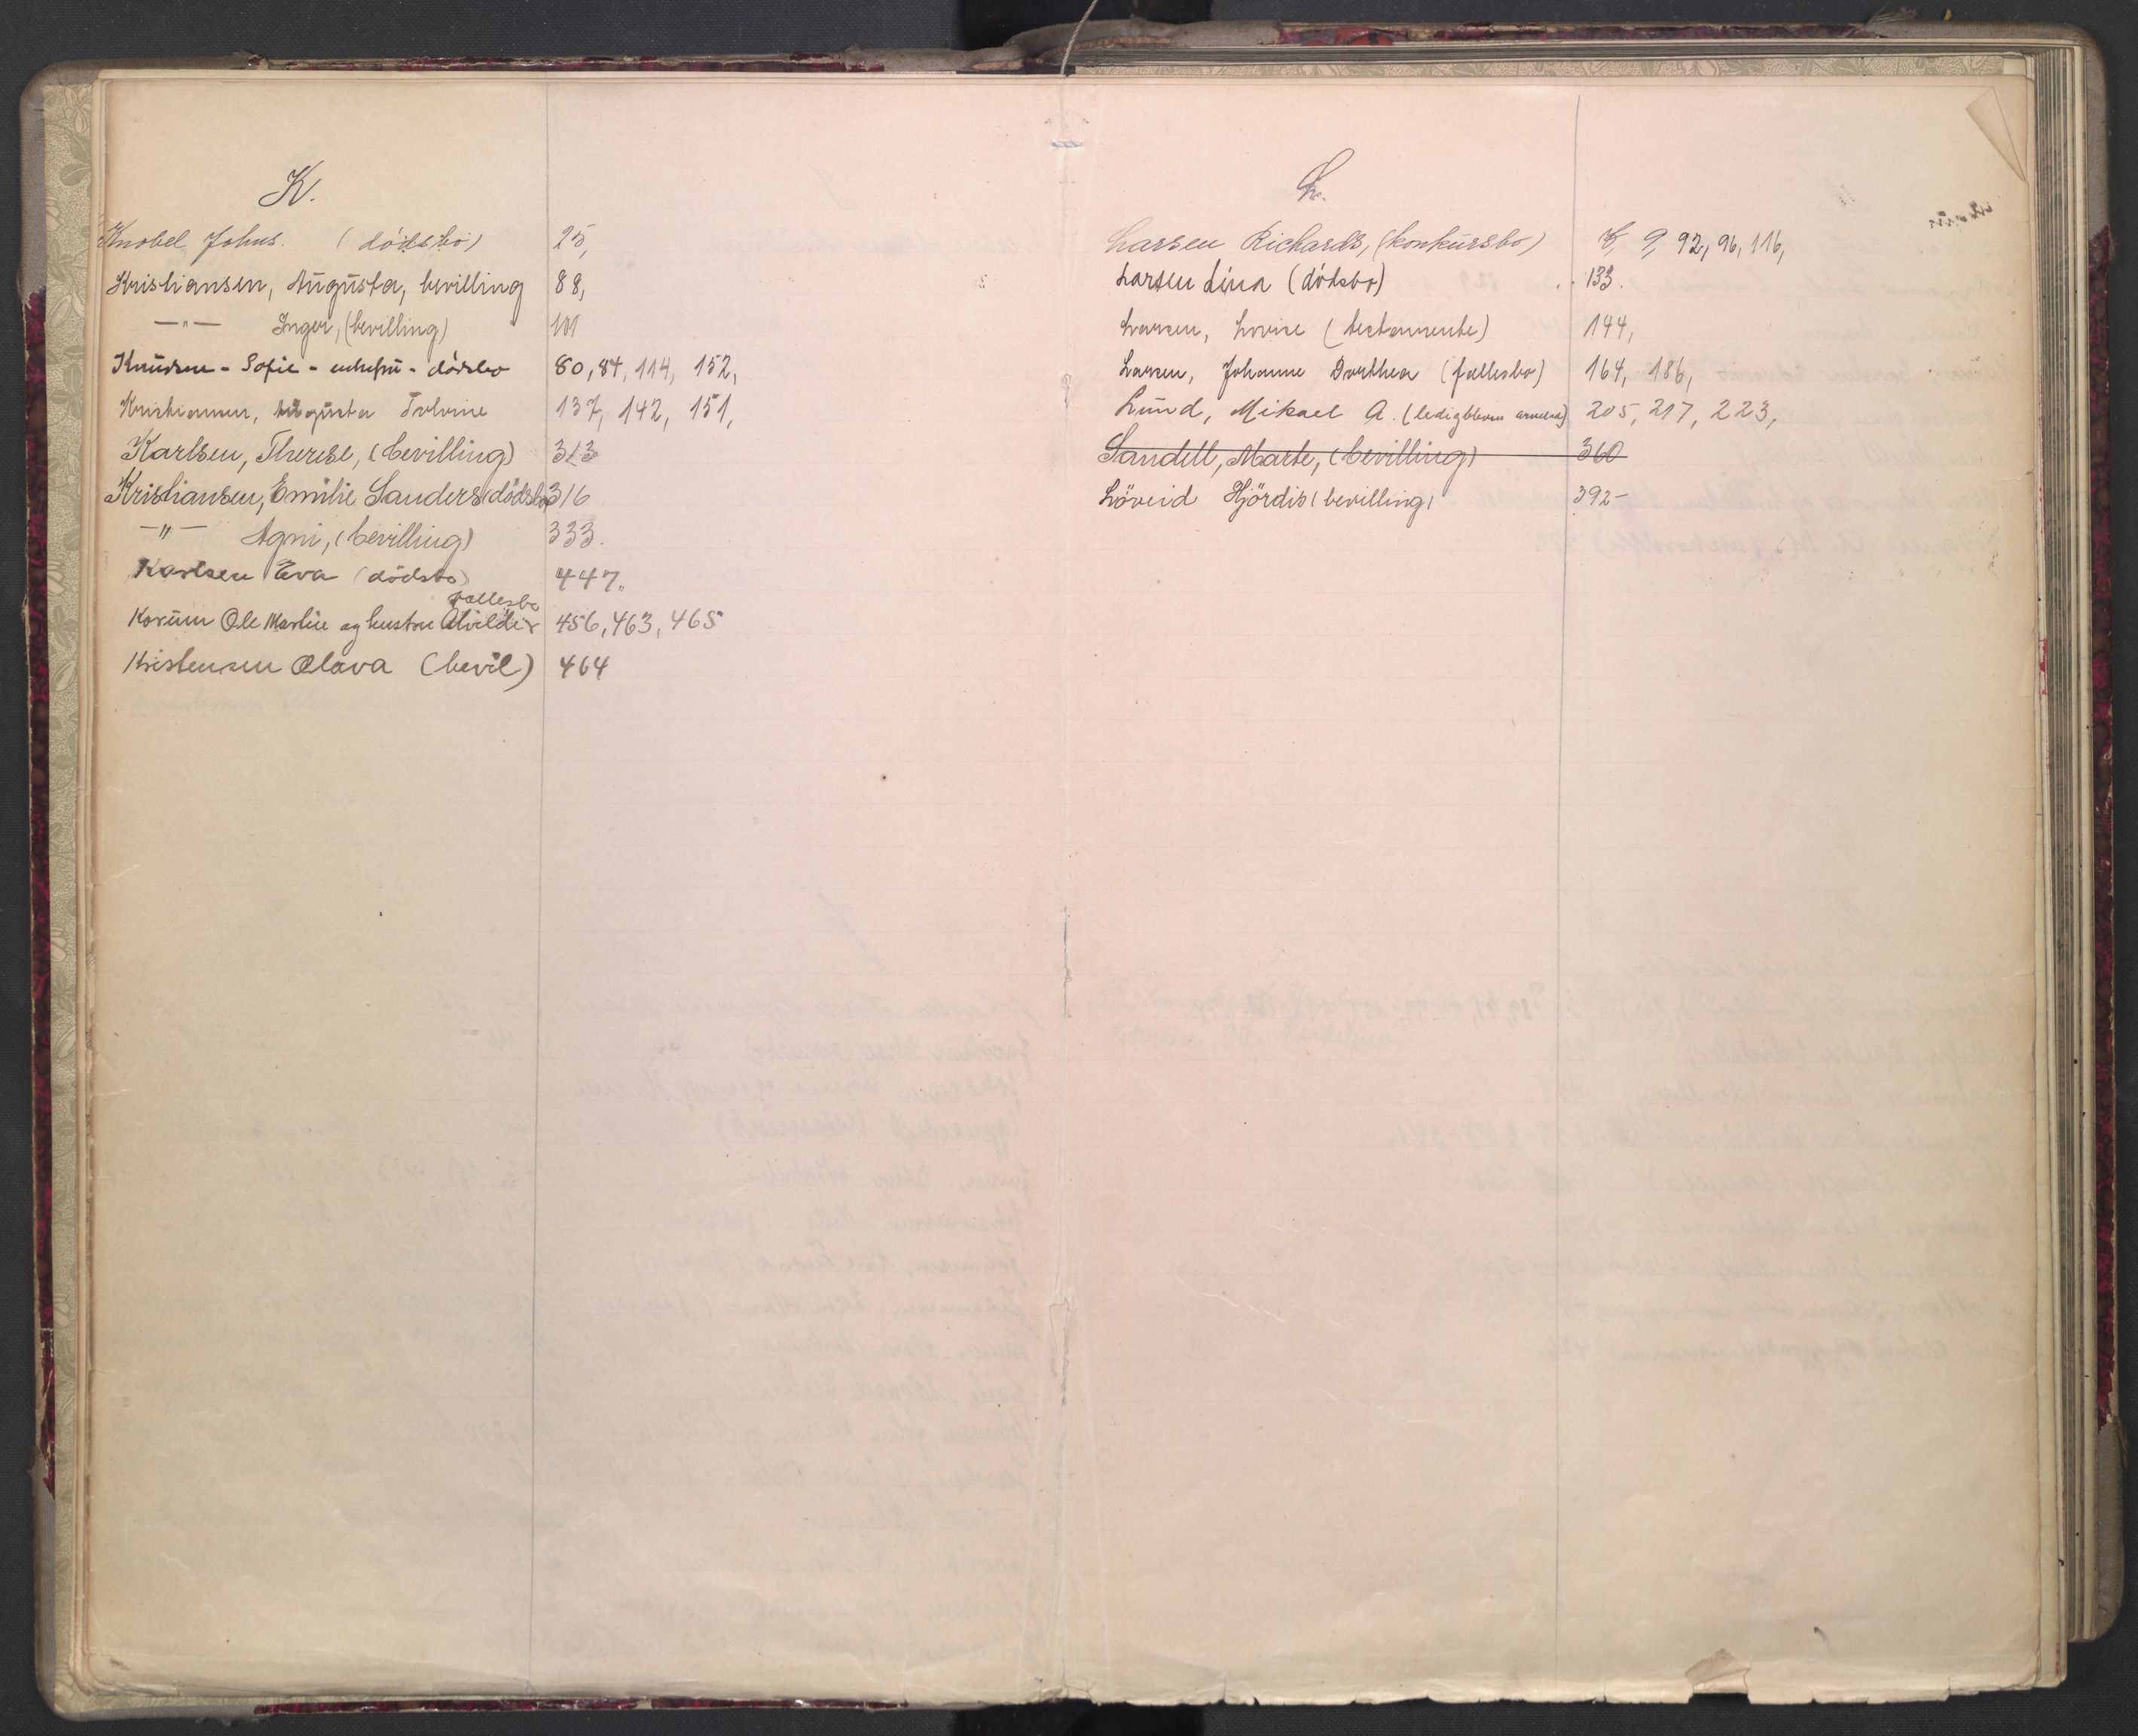 K.
Knobel Johns. (dödsbo) 25,
Kristiansen, Augusta, bevilling 88,
—"— Inger, (bevilling) 101
Knudsen - Sofie - enkefru - dödsbo 80, 84, 114, 152,
Kristiansen, Augusta Tolvine 137, 142, 151,
Karlsen, Therese, (bevilling) 313
Kristiansen, Emilie Sanders (dödsbo) 316
—"— Agni, (bevilling) 333.
Karlsen Eva (dödsbo) 447.
fallesbo
Korum Ole Martin og hustru Alvilde 456, 463, 465
Kristensen Olava (bevil) 464
L.
Larsen Richards, (konkursbo) 9, 92, 96, 116,
Larsen Lina (dödsbo) 133.
Larsen, Lovise (testamente) 144,
Larsen, Johanne Dorthea (fallesbo) 164, 186,
Lund, Mikael A. (ledigbleven) 205, 217, 223,
Sandell, Marte, (bevilling) 360
Löveid Hjördis (bevilling) 392-